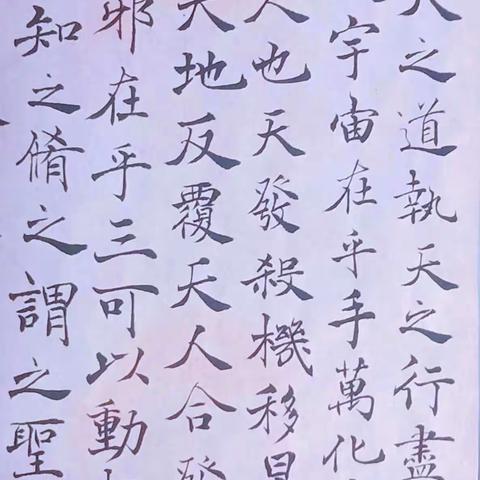 天之道執天之行盡
宇宙在乎手萬化
人也天發殺機移
天地反覆天人合發
邪在乎三可以動
知之脩之謂之聖